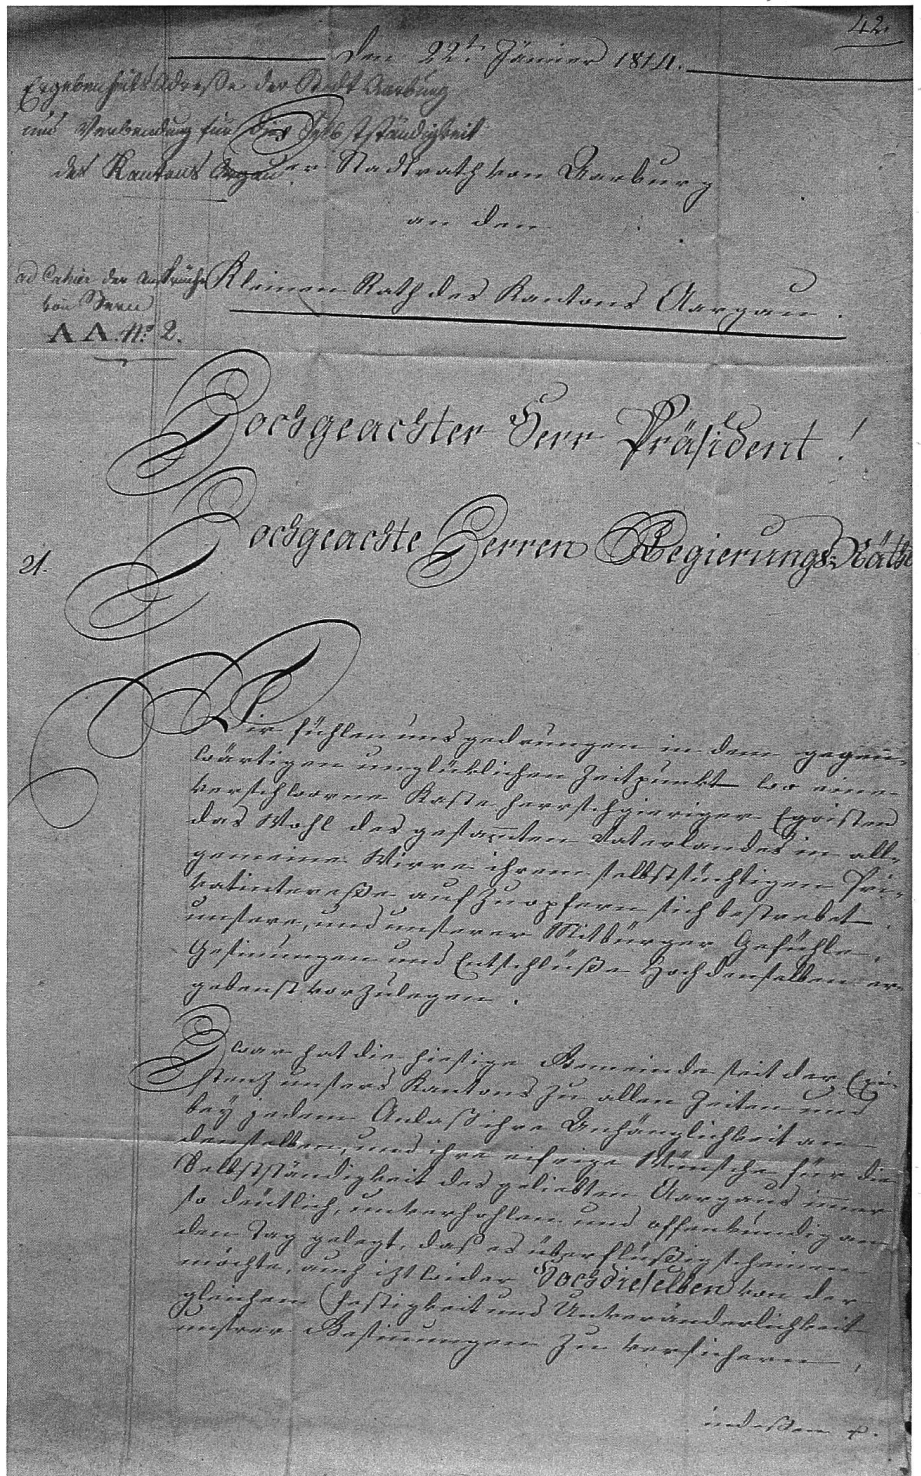 42.
Den 22ten Jänner 1814.
Ergebenheits Adresse der Stadt Aarburg
und Verwendung für die Selbstständigkeit
des Kantons Argau.
Der Stadtrath von Aarburg
an den
Kleinen Rath des Kantons Aargau.
ad Cahier der Ansprüche
von Bern
A A. No. 2.
Hochgeachter Herr Präsident!
Hochgeachte Herren Regierungs-Räthe
21.
Wir fühlen uns gedrungen in dem gegen-
wärtigen unglüklichen Zeitpunkt wo eine
verschworne Kaste herrschgieriger Egoisten
das Wohl des gesamten Vaterlandes in all-
gemeine Wirre ihrem selbstsüchtigen Pri-
vatinteresse aufzuopfern sich bestrebet
unsere, und unserer Mitbürger Gefühle,
Gesinnungen und Entschlüße Hochdenselben er-
gebenst vorzulegen.
Zwar hat die hiesige Gemeinde seit der Exi-
stenz unsers Kantons zu allen Zeiten und
bey jedem Anlaß ihre Anhänglichkeit an
denselben, und ihre eifrige Wünsche für die
Selbstständigkeit des geliebten Aargaus immer
so deutlich, unverhohlen und offenkundig an
den Tag gelegt, daß es überflüßig scheinen
möchte, auch izt wieder Hochdieselben von der
gleichen Festigkeit und Unveränderlichkeit
unserer Gesinnungen zu versichern,
indessen